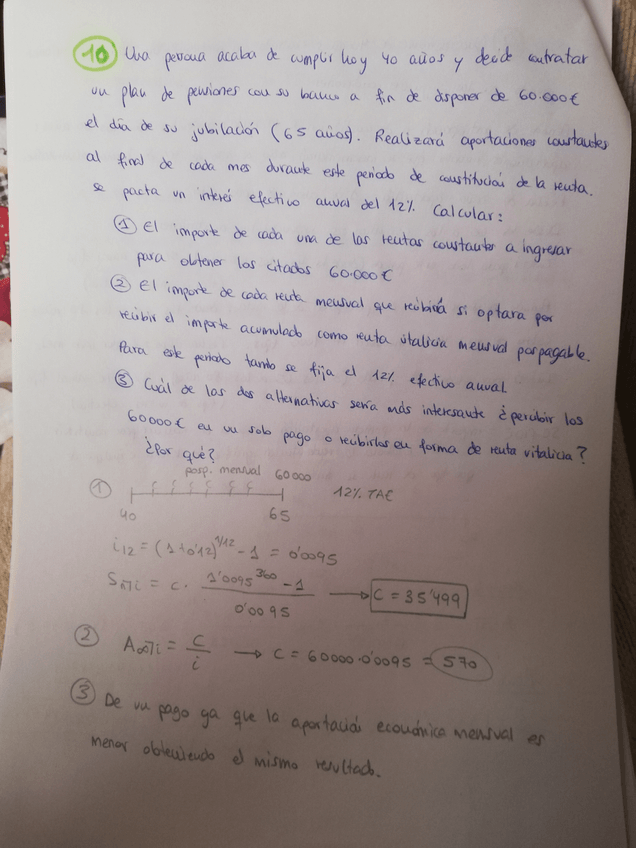 10 Una persona acaba de cumplir hoy 40 años y decide contratar
un plan de pensiones con su banco a fin de disponer de 60.000€
el día de su jubilación (65 años). Realizará aportaciones constantes
al final de cada mes durante este periodo de constitución de la renta.
se pacta un interés efectivo anual del 12%. Calcular:
① El importe de cada una de las rentas constantes a ingresar
para obtener los citados 60.000€
② El importe de cada renta mensual que recibirá si optara por
recibir el importe acumulado como renta vitalicia mensual pospagable.
Para este periodo tambo se fija el 12% efectivo anual.
③ Cuál de las dos alternativas sería más interesante ¿percibir los
60000€ en un solo pago o recibirlos en forma de renta vitalicia?
¿Por qué?
posp. mensual 60000
① 12% TAE
40 65
i12 = (1+0'12)^1/12 - 1 = 0'0095
Sn⌉i = c · (1'0095^300 - 1) / 0'0095 → C = 35'499
② A∞⌉i = C/i → C = 60000·0'0095 = 570
③ De un pago ya que la aportación económica mensual es
menor obteniendo el mismo resultado.